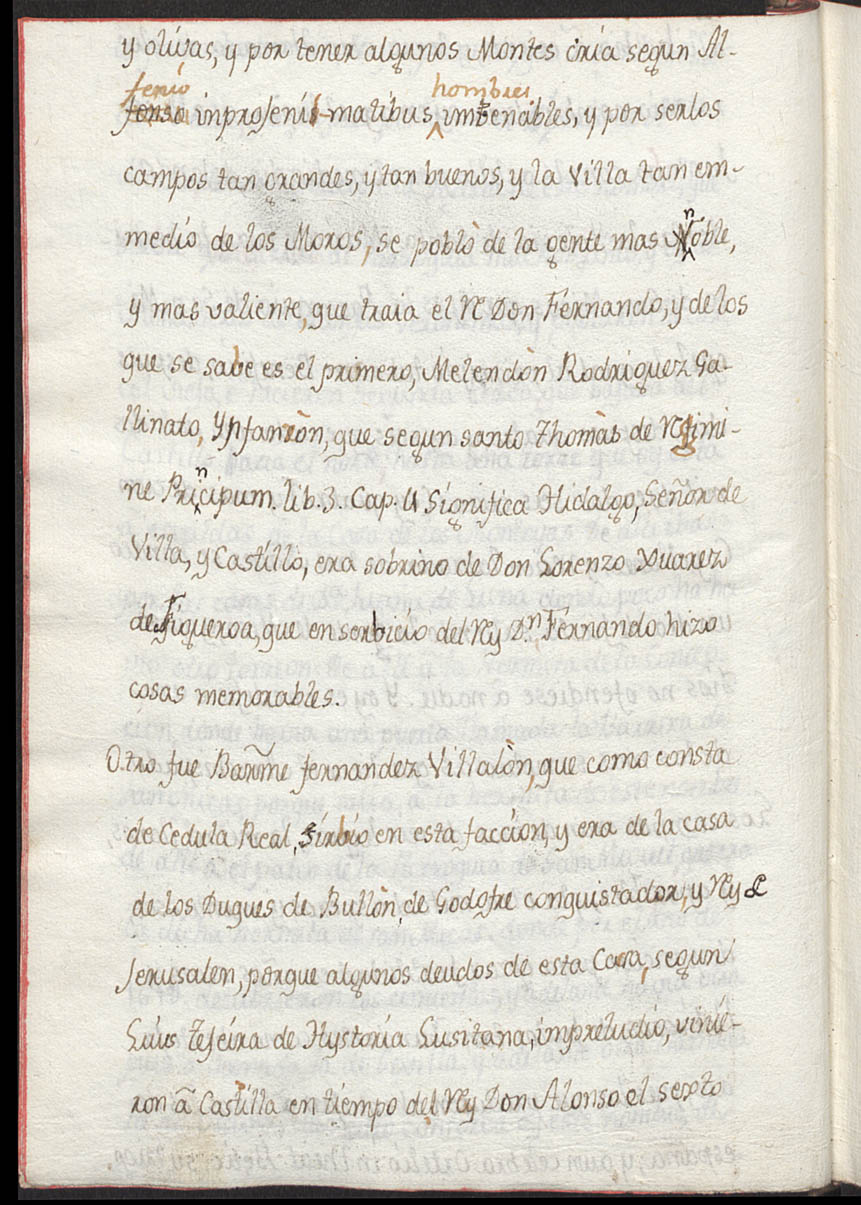 y olivas, y por tener algunos Montes cria segun Al-
fenió hombres
fonso inprofenis matibus, imbenables, y por ser los
campos tan grandes, y tan buenos, y la Villa tan em-
medio de los Moros, se poblò de la gente mas Noble,
y mas valiente, que traia el R Don Fernando, y de los
que se sabe es el primero, Melendòn Rodriguez Ga-
llinato, Ynfanzòn, que segun santo Thomàs de Regimi-
ne Principum. lib. 3. Cap. Significa Hidalgo, Señor de
Villa, y Castillo, era sobrino de Don Lorenzo Xuarez
de Figueroa, que en serbicio del Rey D.n Fernando hizo
cosas memorables.
Otro fue Barme fernandez Villalòn, que como consta
de Cedula Real, Sirbio en esta faccion, y era de la casa
de los Duques de Bullòn, de Godofre conquistador, y Rey de
Jerusalen, porque algunos deudos de esta Casa, segun
Luis Tejeira de Hystoria Lusitana, impreludio, vinie-
ron à Castilla en tiempo del Rey Don Alonso el sexto